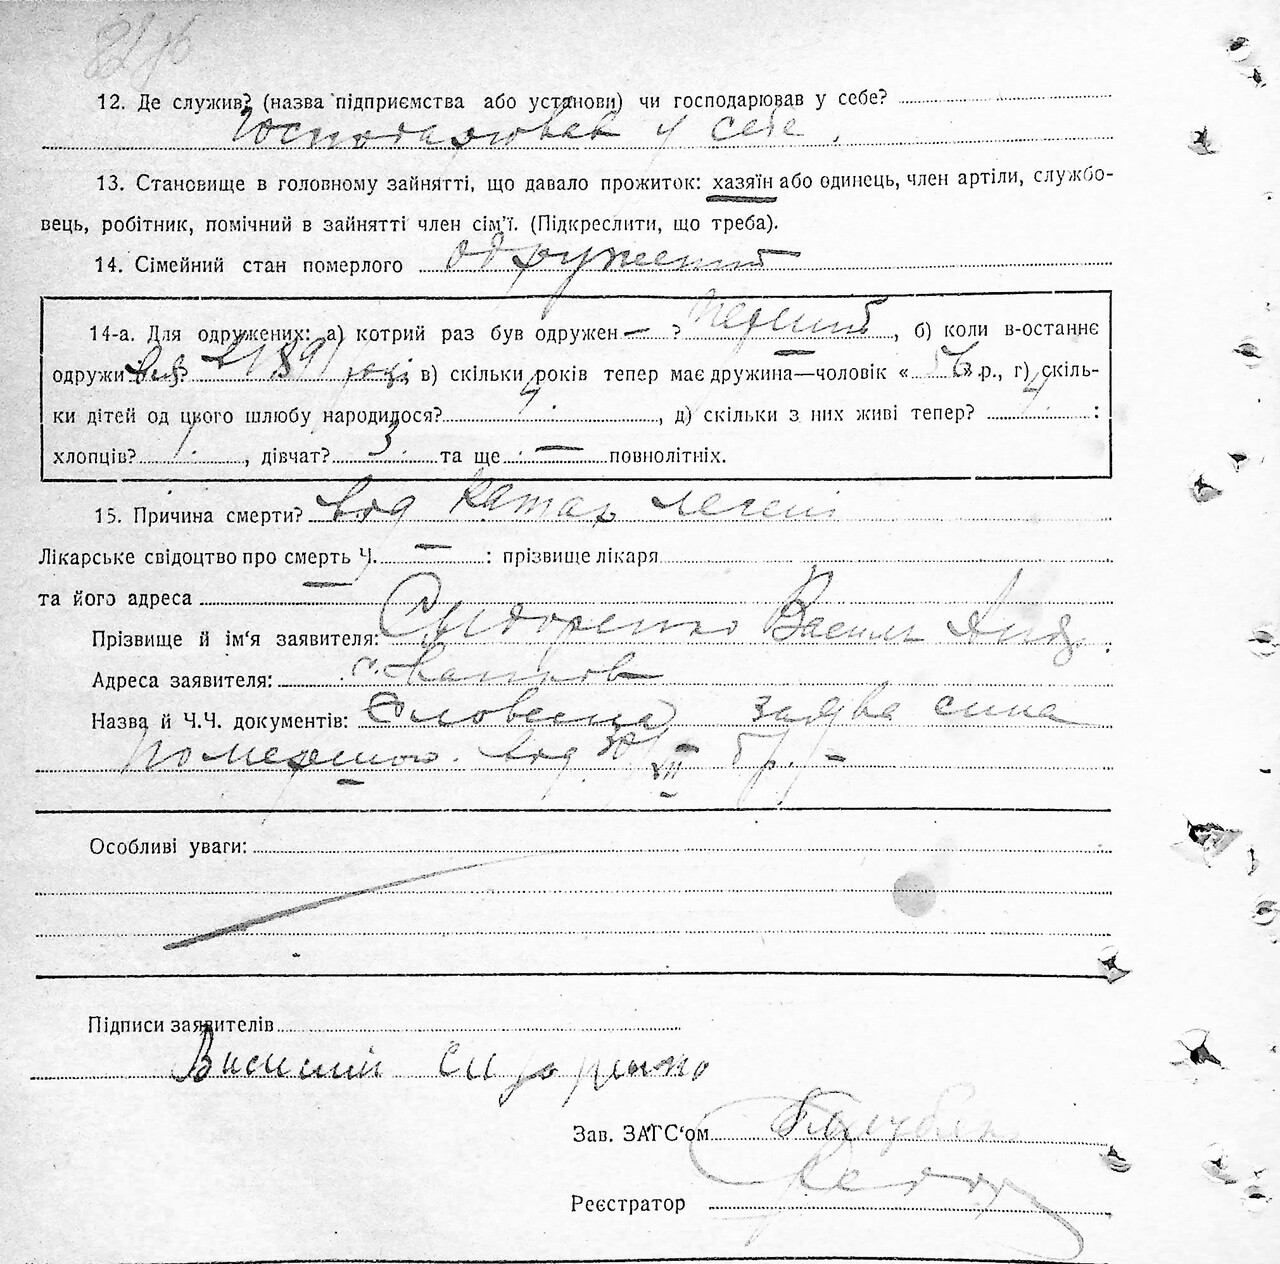 12. Де служив? (назва підприємства або установи) чи господарював у себе?
Господарював у себе.
13. Становище в головному зайнятті, що давало прожиток: хазяїн або одинець, член артіли, службо-
вець, робітник, помічний в зайнятті член сім'ї. (Підкреслити, що треба).
14. Сімейний стан померлого одружений
14-а. Для одружених: а) котрий раз був одружен — ? перший, б) коли в-останнє
одружи вся? 1891 році в) скільки років тепер має дружина—чоловік « 56 » р., г) скіль-
ки дітей од цього шлюбу народилося? 4, д) скільки з них живі тепер? 4 :
хлопців? 1, дівчат? 3 та ще — повнолітніх.
15. Причина смерти? від катар легені
Лікарське свідоцтво про смерть Ч. — : прізвище лікаря
та його адреса —
Прізвище й ім'я заявителя: Сидоренко Василь Анд.
Адреса заявителя: с. Іванків
Назва й Ч.Ч. документів: Словесна заява сина
помершого від 30/XII б/р. –
Особливі уваги:
Підписи заявителів
Василий Сидоренко
Зав. ЗАГС'ом
Реєстратор